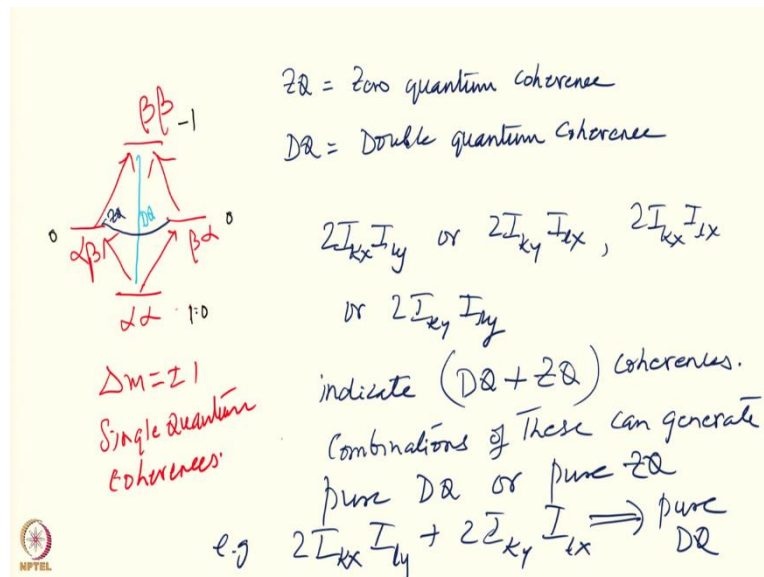 ββ -1
0 αβ ZQ DQ βα 0
αα 1.0
Δm = ±1
Single Quantum
Coherences.
ZQ = Zero quantum Coherence
DQ = Double quantum Coherence
2I_kx I_ly or 2I_ky I_lx, 2I_kx I_lx
or 2I_ky I_ly
indicate (DQ + ZQ) coherences.
Combinations of These can generate
pure DQ or pure ZQ
e.g 2I_kx I_ly + 2I_ky I_lx ⟹ pure
DQ
NPTEL